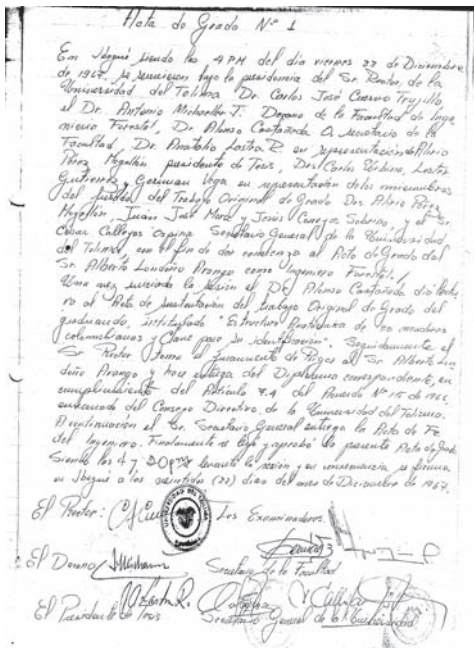 Acta de Grado Nº 1
En Ibagué siendo las 4 PM del día viernes 22 de Diciembre
de 1967, se reunieron bajo la presidencia del Sr. Rector, de la
Universidad del Tolima Dr. Carlos José Cuervo Trujillo,
el Dr. Antonio J. Decano de la Facultad de Inge
niería Forestal, Dr. Alonso Castañeda O. secretario de la
Facultad, Dr. Anatolio Lastra R. en representación de Alirio
Pérez Mogollón presidente de Tesis, Drs. Carlos Urbina, Lester
Gutierrez y German Vega en representación de los miembros
del jurado del Trabajo Original de Grado Drs. Alirio Pérez
Mogollón, Juan José Mora y Jesús Conejos Sobrino, y el Sr.
César Callejas Ospina Secretario General de la Universidad
del Tolima, con el fin de dar comienzo al Acto de Grado del
Sr. Alberto Londoño Arango como Ingeniero Forestal.
Una vez iniciada la sesión el Dr. Alonso Castañeda dió lectu
ra al Acta de sustentación del trabajo Original de Grado del
graduando, intitulado "Estructura de 20 maderas
colombianas y Clave para su identificación". Seguidamente el
Sr. Rector tomó el juramento de rigor al Sr. Alberto Lon
doño Arango y hace entrega del Diploma correspondiente, en
cumplimiento del Artículo 7.4 del Acuerdo Nº 15 de 1966,
emanado del Consejo Directivo de la Universidad del Tolima.
A continuación el Sr. Secretario General entrega la Acta de
del Ingeniero. Finalmente se leyó y aprobó la presente Acta de Grado.
Siendo las se levantó la sesión y en consecuencia se firma
en Ibagué a los veintidos (22) días del mes de Diciembre de 1967.
El Rector:
UNIVERSIDAD DEL TOLIMA
Los Examinadores
El Decano
Secretario de la Facultad
El Presidente de Tesis
Secretario General de la Universidad